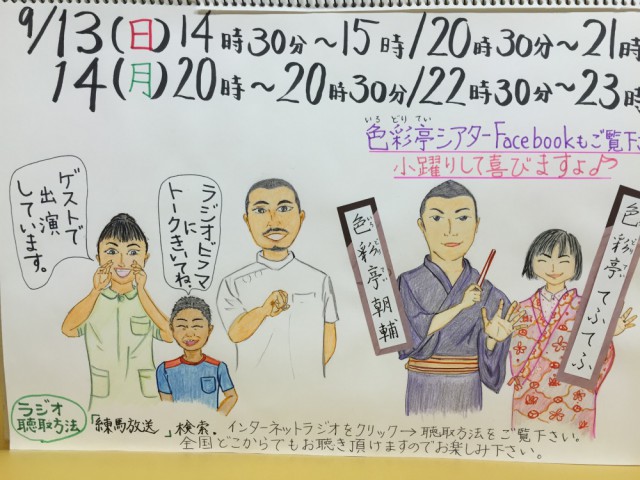 9/13(日)14時30分～15時/20時30分～21時
14(月)20時～20時30分/22時30分～23時
いろ どり てい
色彩亭シアターFacebookもご覧下
小躍りして喜びますょ♪
ゲストで
出演
しています。
ラジオドラマ
に
トークきいてね。
色彩亭朝輔
色彩亭てふてふ
ラジオ
聴取方法
「練馬放送」検索.インターネットラジオをクリック→聴取方法をご覧下さい。
全国どこからでもお聴き頂けますのでお楽しみ下さい。